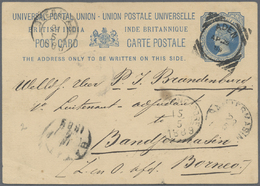 UNIVERSAL POSTAL UNION - UNION POSTALE UNIVERSELLE
BRITISH INDIA INDE BRITANNIQUE
POST CARD CARTE POSTALE
THE ADDRESS ONLY TO BE WRITTEN ON THIS SIDE
P. J. Brandenburg
1e Luitenant-adjudant
to
Bandjermasin
Z. en O. afd. Borneo